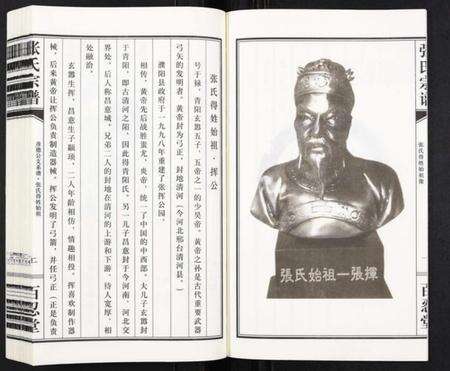 张氏宗谱
彦德公支系谱·张氏得姓始祖
百忍堂
张氏得姓始祖·挥公
号于禄，青阳玄嚣五子，五帝之一的少昊帝，黄帝之孙是古代重要武器
弓矢的发明者，黄帝封为弓正，封地清河（今河北邢台清河县。）
濮阳县政府于一九九八年重建了张挥公园。
相传，黄帝先后战胜蚩尤，炎帝，统一了中国的中西部。大儿子玄嚣封
于青阳，即古清河之阳，因此得青阳氏，另一儿子昌意封于今河南、河北交
界处，后人称昌意城，兄弟二人的封地在清河的上游和下游，待人宽厚，相
处融洽。
玄嚣生挥，昌意生子颛顼，二人年龄相仿，情趣相投，挥喜欢制作器
械，后来黄帝让挥公负责制造器械，挥公发明了弓箭，并任弓正（正是负责
张氏宗谱
张氏得姓始祖像
一
百忍堂
張氏始祖一張揮